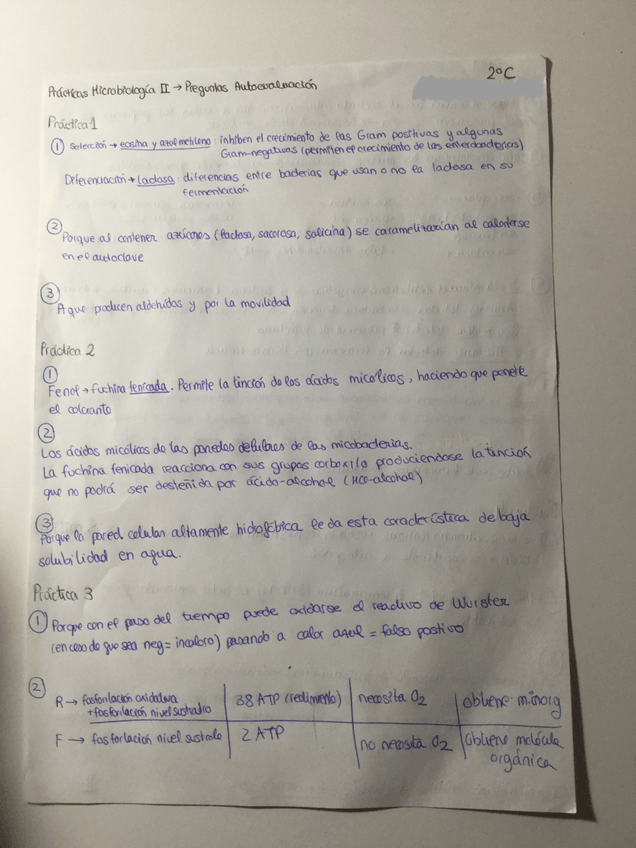 2ºC
Prácticas Microbiología II → Preguntas Autoevaluación
Práctica 1
① Selección → eosina y azul metileno: inhiben el crecimiento de las Gram positivas y algunas
Gram-negativas (permiten el crecimiento de las enterobacterias)
Diferenciación → lactosa: diferencias entre bacterias que usan o no la lactosa en su
fermentación
② Porque al contener azúcares (lactosa, sacarosa, salicina) se caramelizarían al calentarse
en el autoclave
③
A que producen aldehídos y por la movilidad
Práctica 2
①
Fenol → fuchina fenicada. Permite la tinción de los ácidos micólicos, haciendo que penetre
el colorante
②
Los ácidos micólicos de las paredes celulares de las micobacterias.
La fuchina fenicada reacciona con sus grupos carboxilo produciendose la tinción
que no podrá ser desteñida por ácido-alcohol (HCl-alcohol)
③
Porque la pared celular altamente hidrofóbica le da esta característica de baja
solubilidad en agua.
Práctica 3
① Porque con el paso del tiempo puede oxidarse el reactivo de Wurster
(en caso de que sea neg = incoloro) pasando a color azul = falso positivo
②
R → fosforilación oxidativa 38 ATP (redimiento) necesita O2 obtiene: m.inorg
+ fosforilación nivel sustrato
F → fosforlación nivel sustrato 2 ATP no necesita O2 obtiene molécula
orgánica